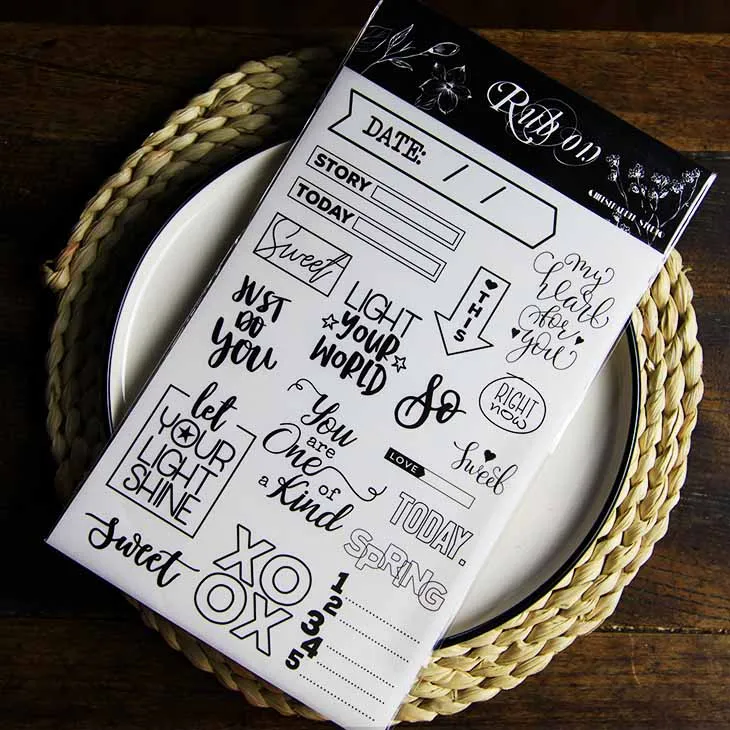 Rub on
DATE: / /
STORY
TODAY
Sweet
my
heart
for
you
THIS
JUST
DO
You
LIGHT
YOUR
WORLD
So
RIGHT
now
let
YOUR
LIGHT
SHINE
You
are
One of
a Kind
LOVE
Sweet
TODAY.
SPRING
Sweet
XO
OX
1
2
3
4
5